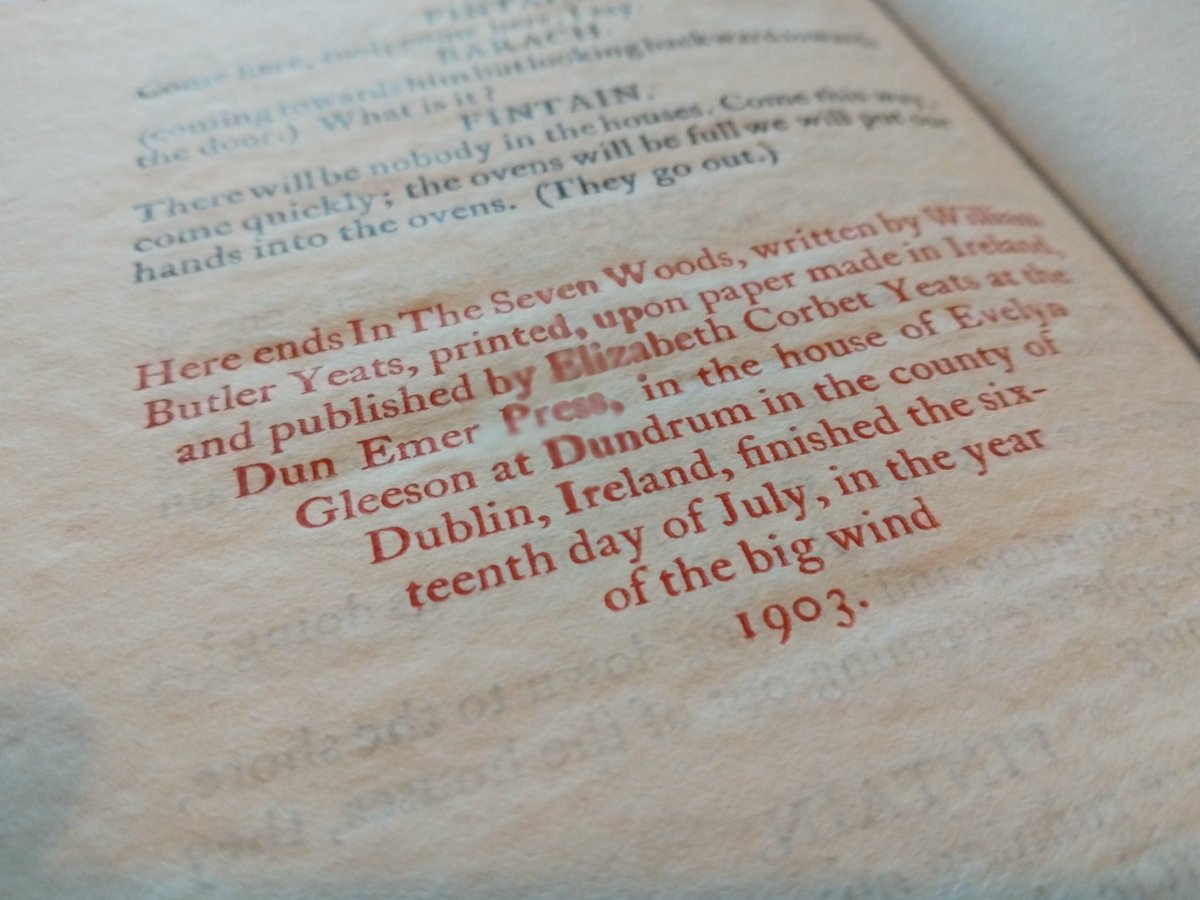 FINTAIN.
Come here,
BARACH.
(coming towards him but looking backward towards
the door.) What is it?
FINTAIN.
There will be nobody in the houses. Come this way,
come quickly; the ovens will be full we will put our
hands into the ovens. (They go out.)
Here ends In The Seven Woods, written by William
Butler Yeats, printed, upon paper made in Ireland,
and published by Elizabeth Corbet Yeats at the
Dun Emer Press, in the house of Evelyn
Gleeson at Dundrum in the county of
Dublin, Ireland, finished the six-
teenth day of July, in the year
of the big wind
1903.